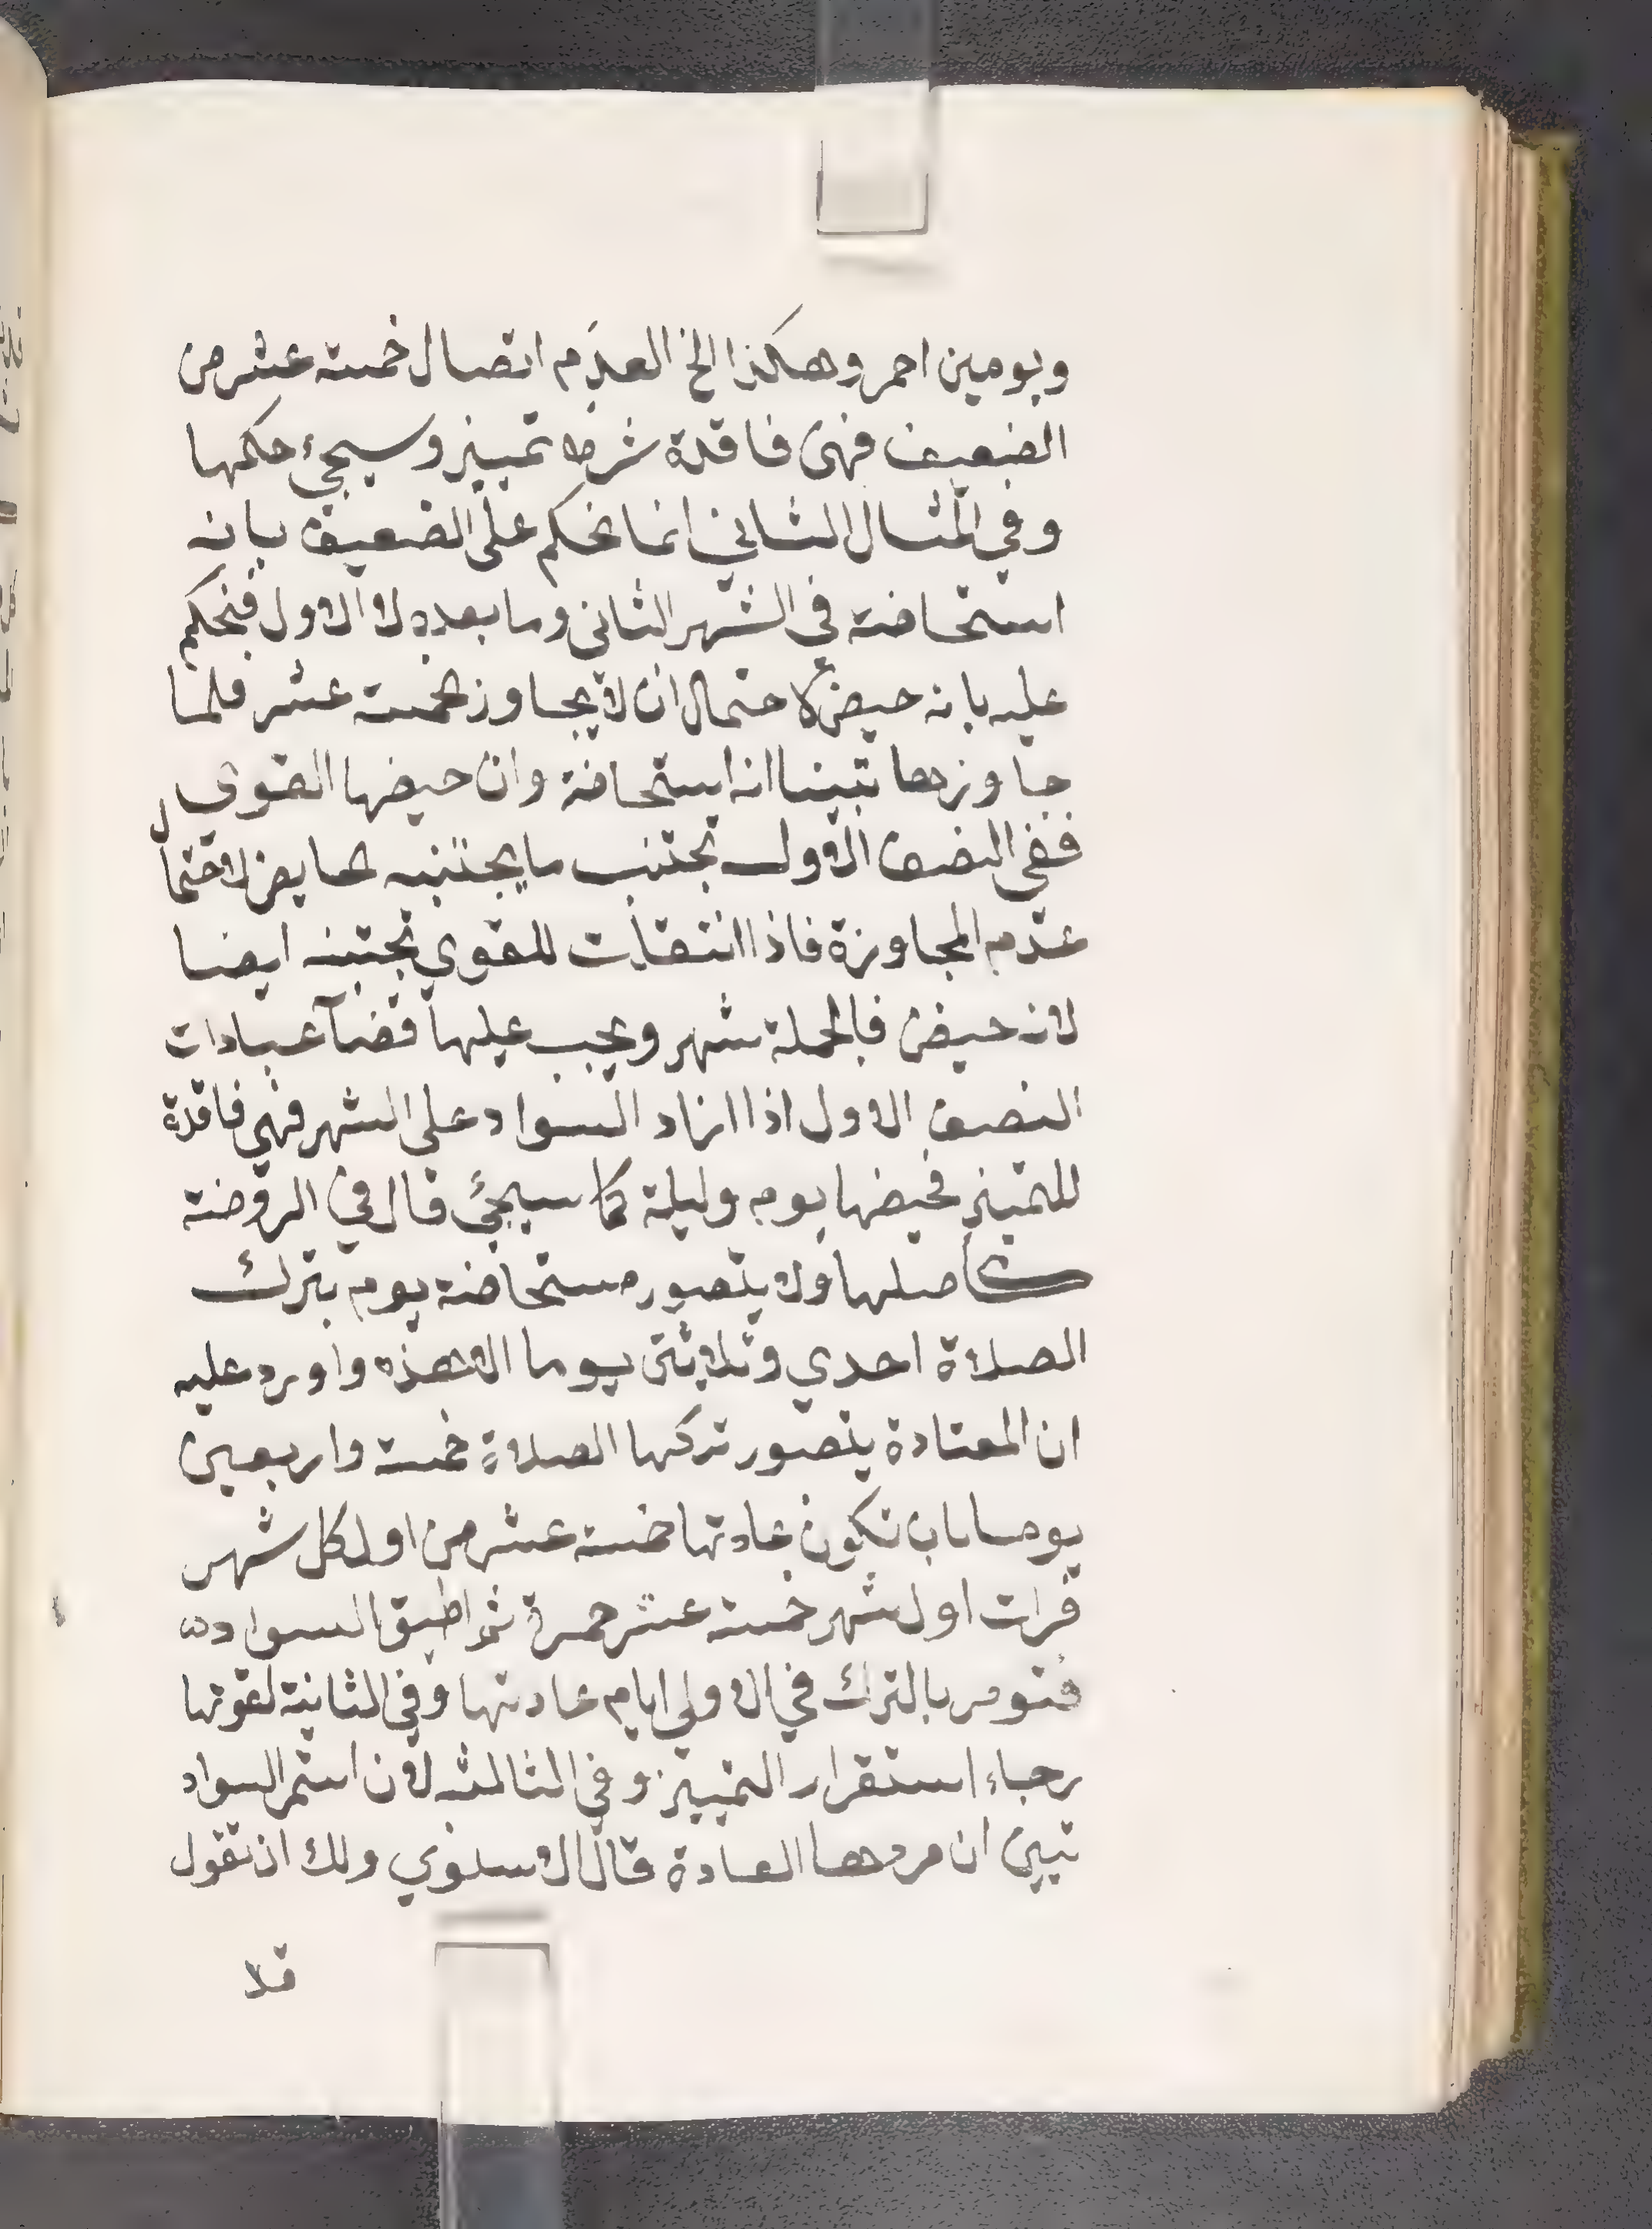 ويومين احمر وهكذا الخ العدم اتصال خمسة عشر من
الضعيف فهى فاقدة شرط تمييز وسيجيء حكمها
وفي المثال الثاني انما نحكم على الضعيف بانه
استحاضة في الشهر الثاني وما بعده لا الاول فنحكم
عليه بانه حيض لاحتمال ان لا يجاوز الخمسة عشر فلما
جاوزها تبينا انه استحاضة وان حيضها القوي
ففي النصف الاول تجتنب ما يجتنبه الحايض لاحتمال
عدم المجاوزة فاذا انتقلت للقوي تجتنبه ايضا
لانه حيض فالجملة شهر ويجب عليها قضآ عبادات
النصف الاول اذا ازاد السواد على الشهر فهي فاقدة
للتميز فحيضها يوم وليلة كما سيجئ قال في الروضة
كاصلها ولا يتصور مستحاضة يوم بترك
الصلاة احدي وثلاثين يوما الا هذه واورد عليه
ان المعتادة يتصور تركها الصلاة خمسة واربعين
يوما بان تكون عادتها خمسة عشر من اول كل شهر
فرات اول شهر خمسة عشر حمرة ثم اطبق السواد
فتومر بالترك في الاولي ايام عادتها وفي الثانية لقوتها
رجاء استقرار التمييز وفي الثالثه لان استمر السواد
تبين ان مردها العادة قال الاسنوي ولك ان تقول
قلا